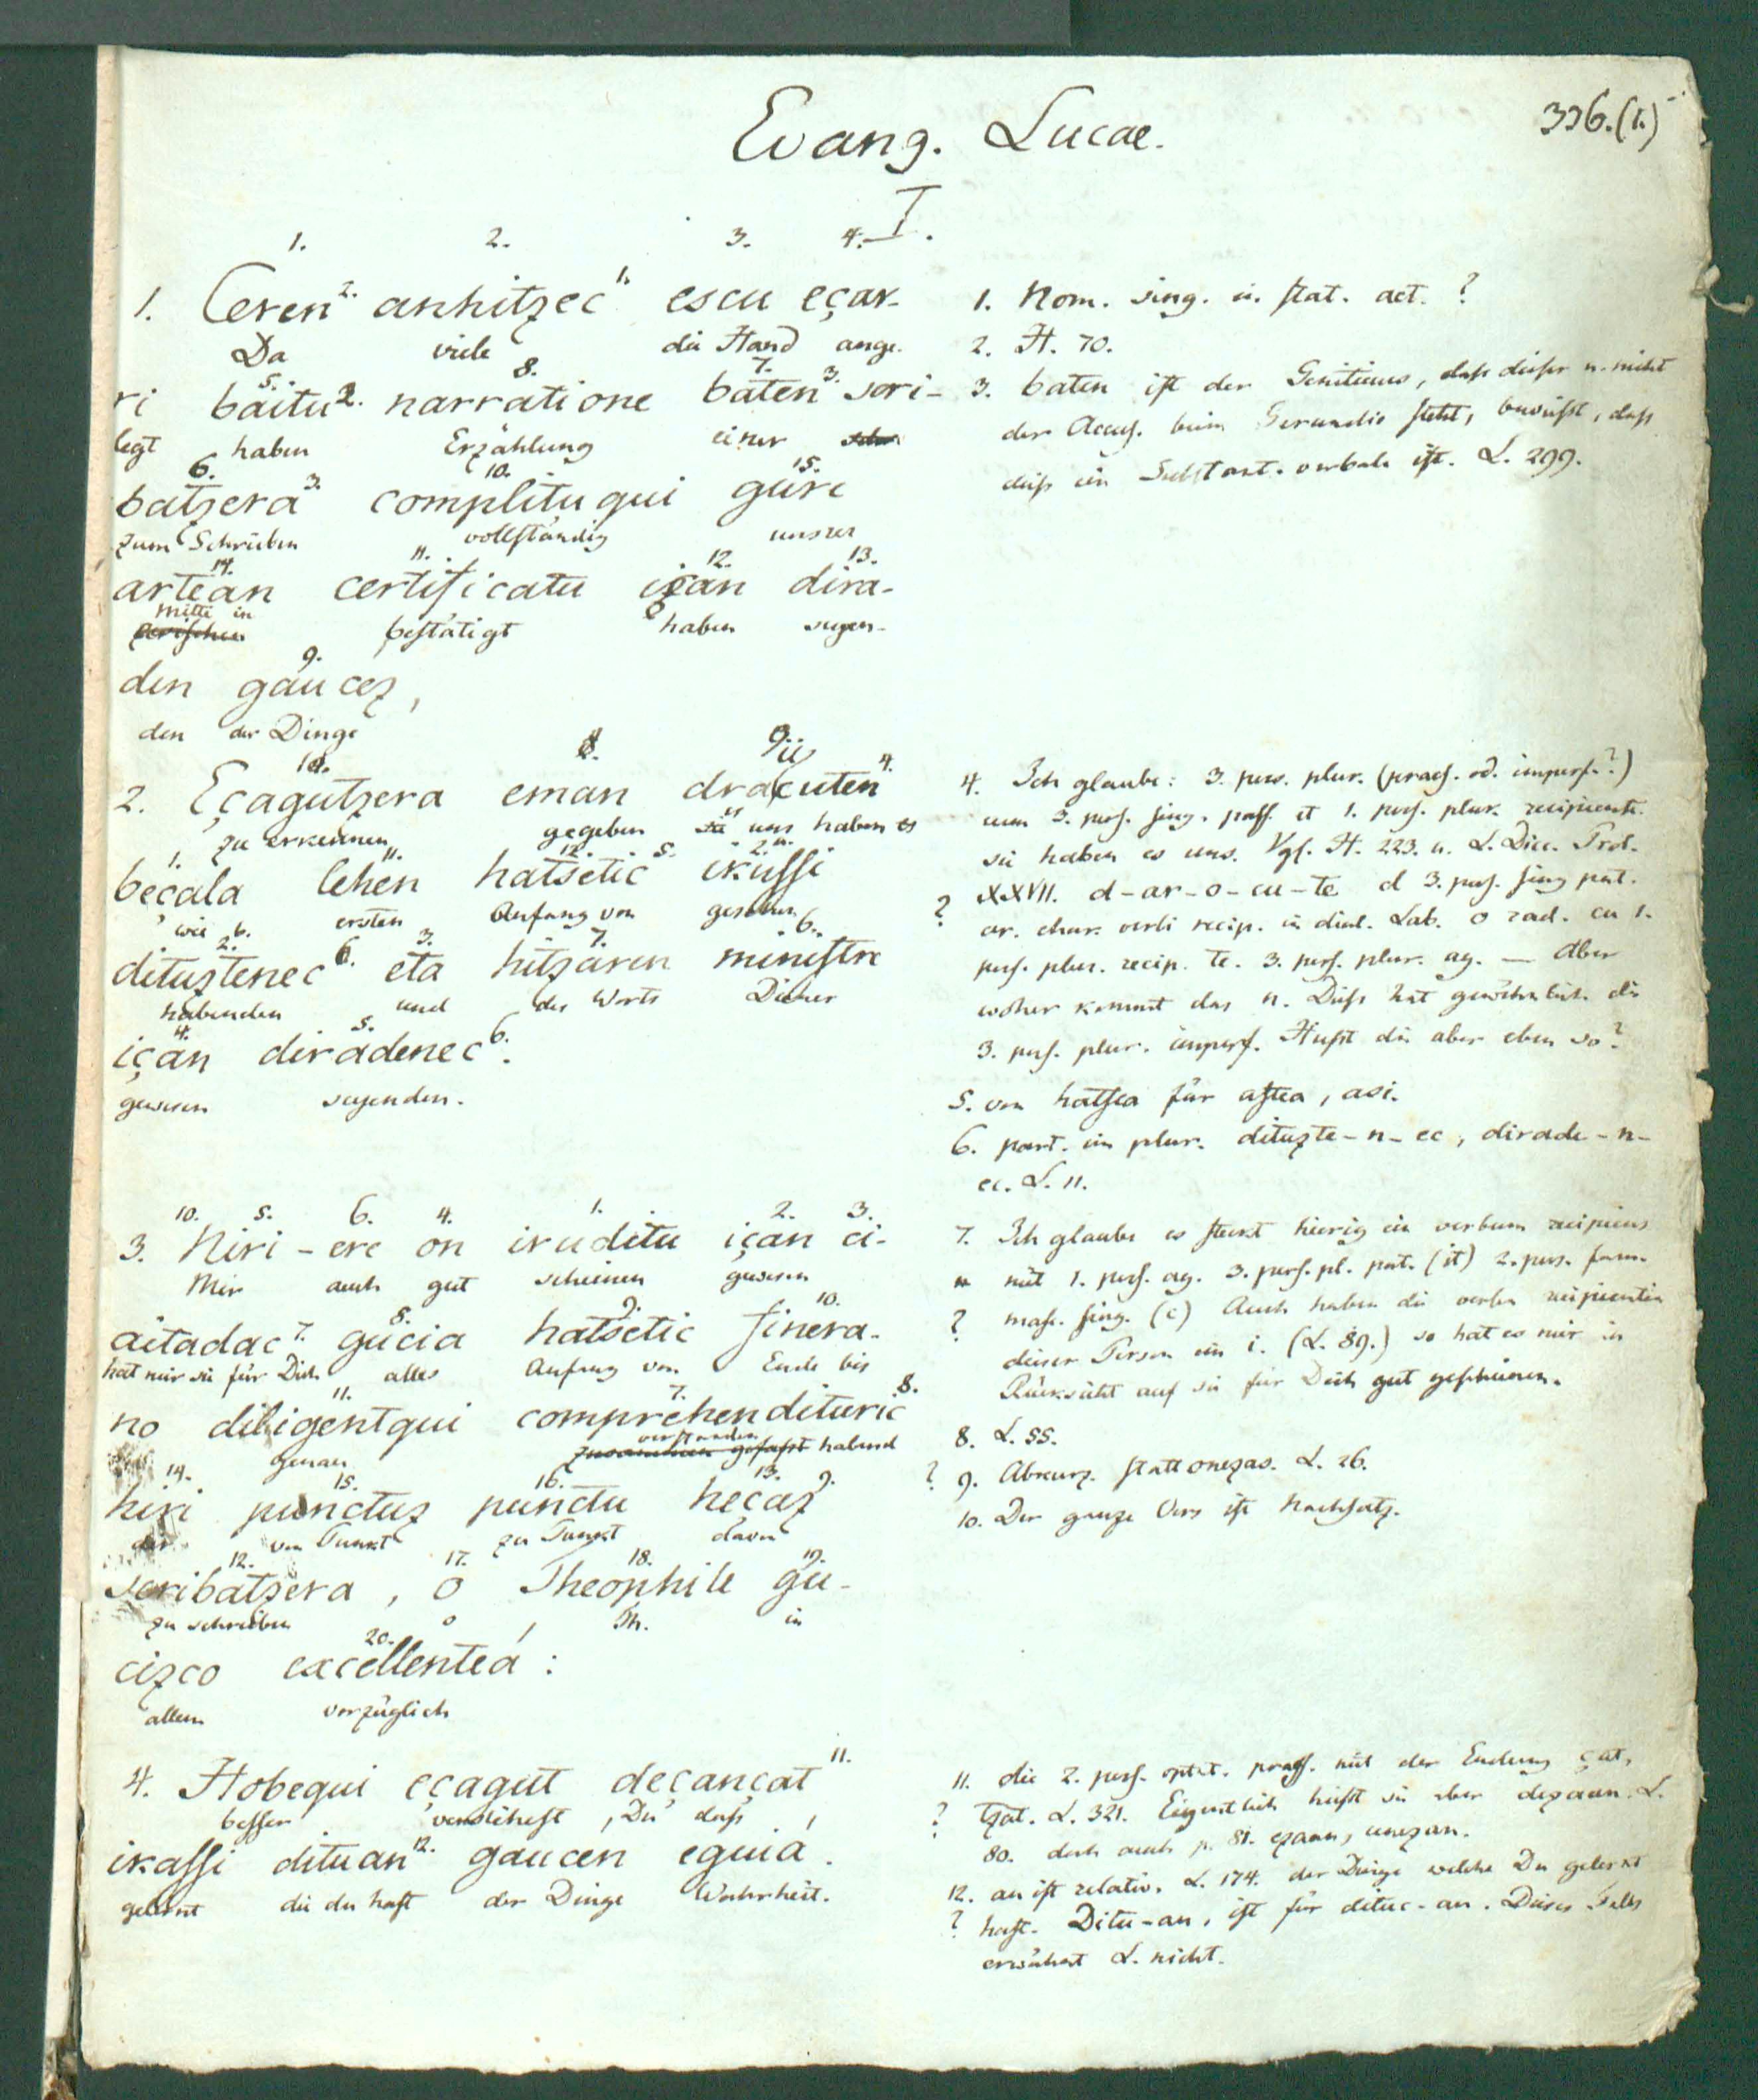 336.(1.)
Evang. Lucae.
I.
1. 2. 3. 4.
1. Ceren 2. anhitzec 1. escu eçar-
Da viele die Hand ange-
5. 8. 7.
ri baitu 2. narratione baten 3. scri-
legt haben Erzählung einer
6. 10. 15.
batzera 3. complituqui gure
zum Schreiben vollständig unsrer
14. 11. 12. 13.
artean certificatu içan dira-
Mitte in bestätigt haben seyen-
9.
den gaucez,
den der Dinge
2. Eçagutzera eman draucuten 4.
zu erkennen gegeben uns haben es
1. 11. 12. 2.
beçala lehen hatsetic 5. ikussi
wie ersten Anfang von gesehen
2. 6. 3. 7. 6.
dituztenec 6. eta hitzaren ministre
habenden und des Worts Diener
4. 5.
içan diradenec 6.
gewesen seyenden.
10. 5. 6. 4. 1. 2. 3.
3. Niri-ere on iruditu içan ci-
Mir auch gut scheinen gewesen
8. 9. 10.
aitadac 7. gucia hatsetic finera-
hat mir sie für Dich alles Anfang von Ende bis
11. 7.
no diligentqui comprehendituric 8.
genau verstanden habend
14. 15. 16. 13.
hiri punctuz punctu heçaz 9.
dir von Punkt zu Punkt davon
12. 17. 18. 19.
scribatzera, o Theophile gu-
zu schreiben o Th. in
20.
cizco excellentea:
allem vorzüglich
4. Hobequi eçagut deçançat 11.
besser verstehest, Du dass
ikassi dituan 12. gaucén eguiá.
gelernt die du hast der Dinge Wahrheit.
1. Nom. sing. in stat. act. ?
2. H. 70.
3. baten ist der Genitivus, dass dieser u. nicht
der Accus. beim Gerundio steht, beweist, dass
diess ein Substant. verbale ist. L. 299.
4. Ich glaube: 3. pers. plur. (praes. od. imperf.?)
cum 3. pers. sing. pass. et 1. pers. plur. recipiente.
sie haben es uns. Vgl. H. 223. u. L. Dicc. Prol.
? XXVII. d-ar-o-cu-te d 3. pers. sing pat.
ar. char. verbi recip. in dial. Lab. o rad. cu 1.
pers. plur. recip. te. 3. pers. plur. ag. — Aber
woher kommt das n. Diess hat gewöhnlich die
3. pers. plur. imperf. Heisst die aber eben so?
5. von hatsea für astea, asi.
6. part. im plur. dituzte-n-ec, dirade-n-
ec. L. 11.
7. Ich glaube es steckt hierin ein verbum recipiens
mit 1. pers. ag. 3. pers. pl. pat. (it) 2. pers. fam.
? masc. sing. (c) Auch haben die verba recipientia
dieser Person ein i. (L. 89.) so hat es mir in
Rücksicht auf sie für Dich gut geschienen.
8. L. 55.
? 9. Abkurz. statt onezas. L. 26.
10. Der ganze Vers ist Nachsatz.
11. die 2. pers. optat. praes. mit der Endung çat,
? tzat. L. 321. Eigentlich heisst sie aber dezaan. L.
80. doch auch p. 81. ezaan, unezan.
12. an ist relativ. L. 174. der Dinge welche Du gelernt
? hast. Ditu-an, ist für dituc-an. Dieses Falls
erwähnt L. nicht.